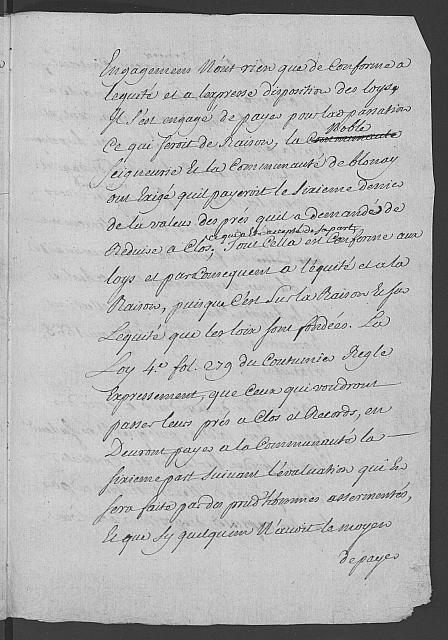 Engagemens N'ont rien que de Conforme a
lequité et a l'expresse disposition des loys,
Il s'est engagé de payer pour la passation
ce qui seroit de Raison, la Noble
Seigneurie Et la Communauté de blonay
ont Exigé quil payeroit le sixieme denier
de la valeur des prés quil a demandé de
Reduire a Clos, ce qui a été accepté de sa part,
Tout Cella est Conforme aux
loys et par Consequent a l'équité et a la
Raison, puisque C'est Sur la Raison Et sur
L'equité que les loix sont fondées. La
Loy 4.e fol. 279 du Coutumier Regle
Expressement, que Ceux qui voudront
passer leurs prés a Clos et Records, en
Devront payer a la Communauté la
sixieme part suivant l'évaluation qui En
sera faite par des prud'hommes assermentés,
Et que sy quelquun N'avoit le moyen
de payer